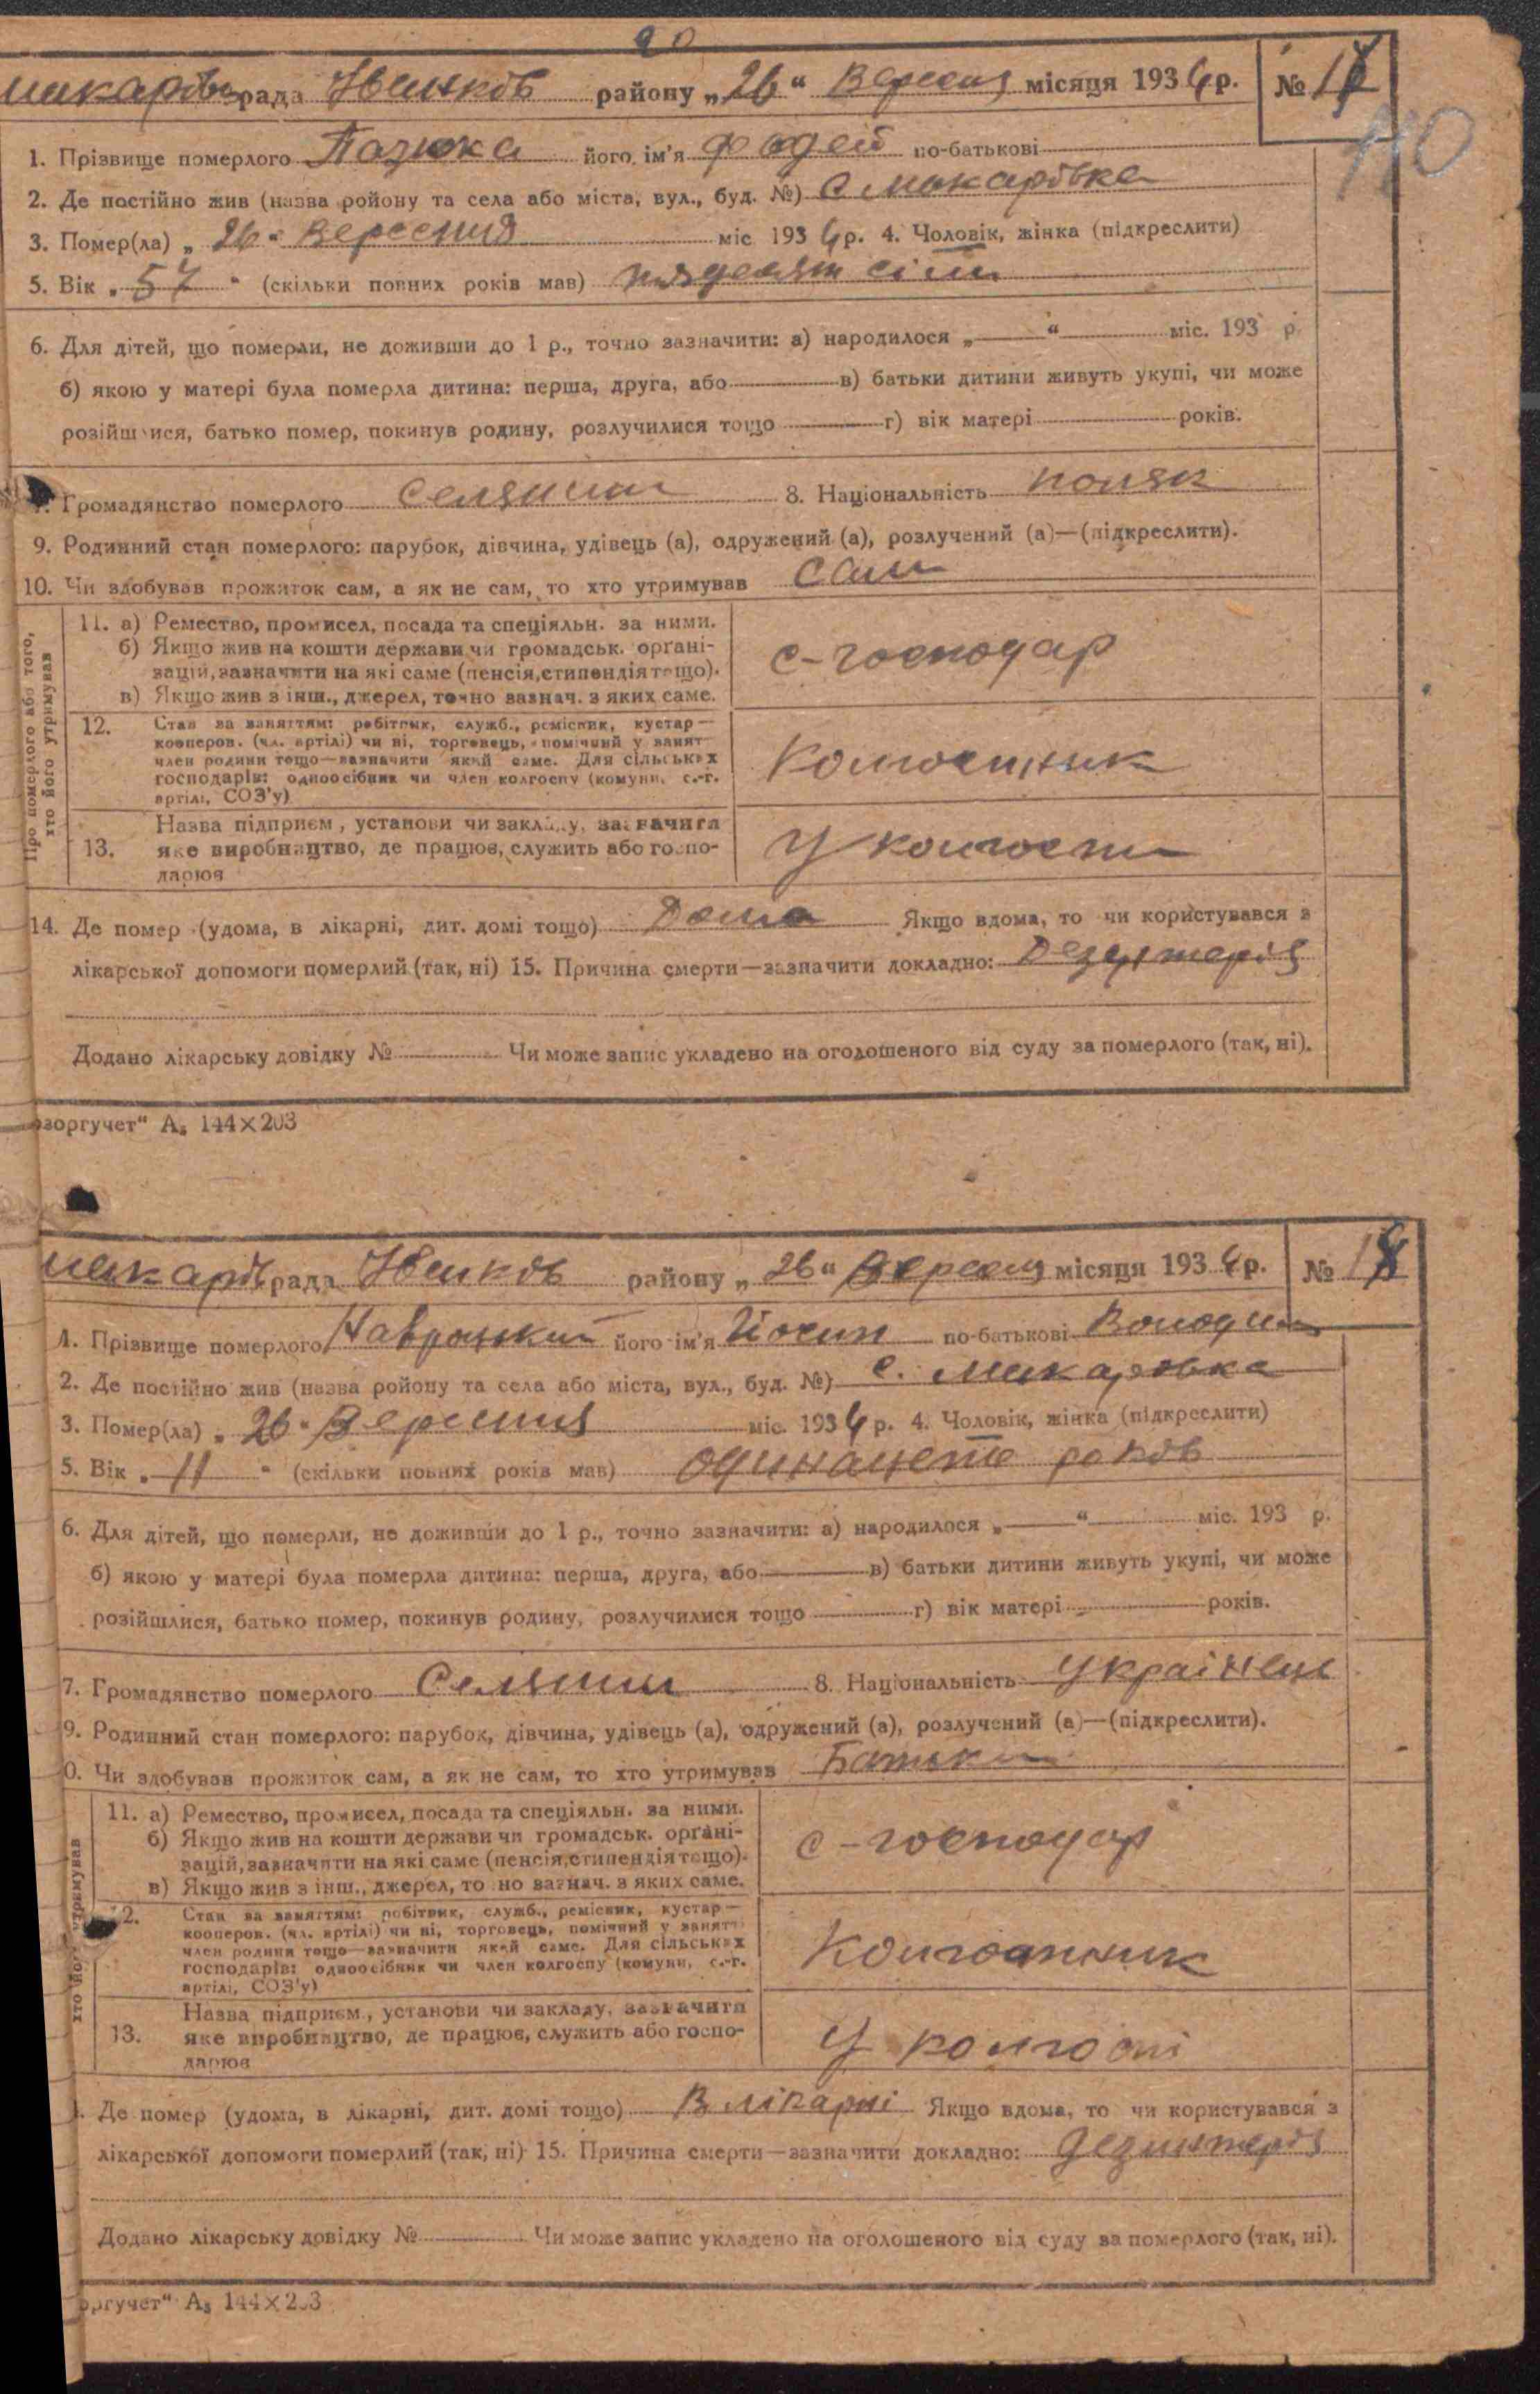 макарів рада Ивенков району „26“ Вересня місяця 1934 р. № 17
110
1. Прізвище померлого Пазюка його ім’я Фадей по-батькові
2. Де постійно жив (назва ройону та села або міста, вул., буд. №) с макарівка
3. Помер(ла) „ 26 “ Вересния міс 1934 р. 4. Чоловік, жінка (підкреслити)
5. Вік „ 57 “ (скільки повних років мав) пядесят сім
6. Для дітей, що померли, не доживши до 1 р., точно зазначити: а) народилося „ “ міс. 193 р.
б) якою у матері була померла дитина: перша, друга, або в) батьки дитини живуть укупі, чи може
розійшлися, батько помер, покинув родину, розлучилися тощо г) вік матері років.
7. Громадянство померлого селянин 8. Національність поляк
9. Родинний стан померлого: парубок, дівчина, удівець (а), одружений (а), розлучений (а)—(підкреслити).
10. Чи здобував прожиток сам, а як не сам, то хто утримував сам
Про померлого або того, хто його утримував
11. а) Ремество, промисел, посада та спеціяльн. за ними.
б) Якщо жив на кошти держави чи громадськ. орґані-
зацій, зазначити на які саме (пенсія, стипендія тощо).
в) Якщо жив з інш., джерел, точно зазнач. з яких саме.
с-господар
12. Стан за заняттям: робітник, служб., ремісник, кустар—
кооперов. (чл. артілі) чи ні, торговець, помічний у занят
член родини тощо—зазначити який саме. Для сільських
господарів: одноосібник чи член колгоспу (комуни, с.-г.
артілі, СОЗ’у)
Колгоспник
13. Назва підприєм., установи чи закладу, зазначити
яке виробництво, де працює, служить або госпо-
дарює
У колгоспи
14. Де помер (удома, в лікарні, дит. домі тощо) Дома Якщо вдома, то чи користувався з
лікарської допомоги померлий (так, ні) 15. Причина смерти—зазначити докладно: Дезентерія
Додано лікарську довідку № Чи може запис укладено на оголошеного від суду за померлого (так, ні).
зоргучет“ А₅ 144×203
макарів рада Ивенков району „ 26 “ Вересня місяця 1934 р. № 18
1. Прізвище померлого Навроцкий його ім’я Йосип по-батькові Володим
2. Де постійно жив (назва ройону та села або міста, вул., буд. №) с. макаровка
3. Помер(ла) „ 26 “ Вересния міс. 1934 р. 4. Чоловік, жінка (підкреслити)
5. Вік „ 11 “ (скільки повних років мав) одинацеть років
6. Для дітей, що померли, не доживши до 1 р., точно зазначити: а) народилося „ “ міс. 193 р.
б) якою у матері була померла дитина: перша, друга, або в) батьки дитини живуть укупі, чи може
розійшлися, батько помер, покинув родину, розлучилися тощо г) вік матері років.
7. Громадянство померлого Селянин 8. Національність Українець
9. Родинний стан померлого: парубок, дівчина, удівець (а), одружений (а), розлучений (а)—(підкреслити).
0. Чи здобував прожиток сам, а як не сам, то хто утримував Батьки
хто його утримував
11. а) Ремество, промисел, посада та спеціяльн. за ними.
б) Якщо жив на кошти держави чи громадськ. орґані-
зацій, зазначити на які саме (пенсія, стипендія тощо).
в) Якщо жив з інш., джерел, точно зазнач. з яких саме.
с-господар
2. Стан за заняттям: робітник, служб., ремісник, кустар—
кооперов. (чл. артілі) чи ні, торговець, помічний у занятт
член родини тощо—зазначити який саме. Для сільських
господарів: одноосібник чи член колгоспу (комуни, с.-г.
артілі, СОЗ’у)
Колгоспник
13. Назва підприєм., установи чи закладу, зазначити
яке виробництво, де працює, служить або госпо-
дарює
У колгоспі
Де помер (удома, в лікарні, дит. домі тощо) В лікарні Якщо вдома, то чи користувався з
лікарської допомоги померлий (так, ні) 15. Причина смерти—зазначити докладно: Дезинтерія
Додано лікарську довідку № Чи може запис укладено на оголошеного від суду за померлого (так, ні).
оргучет“ А₅ 144×203